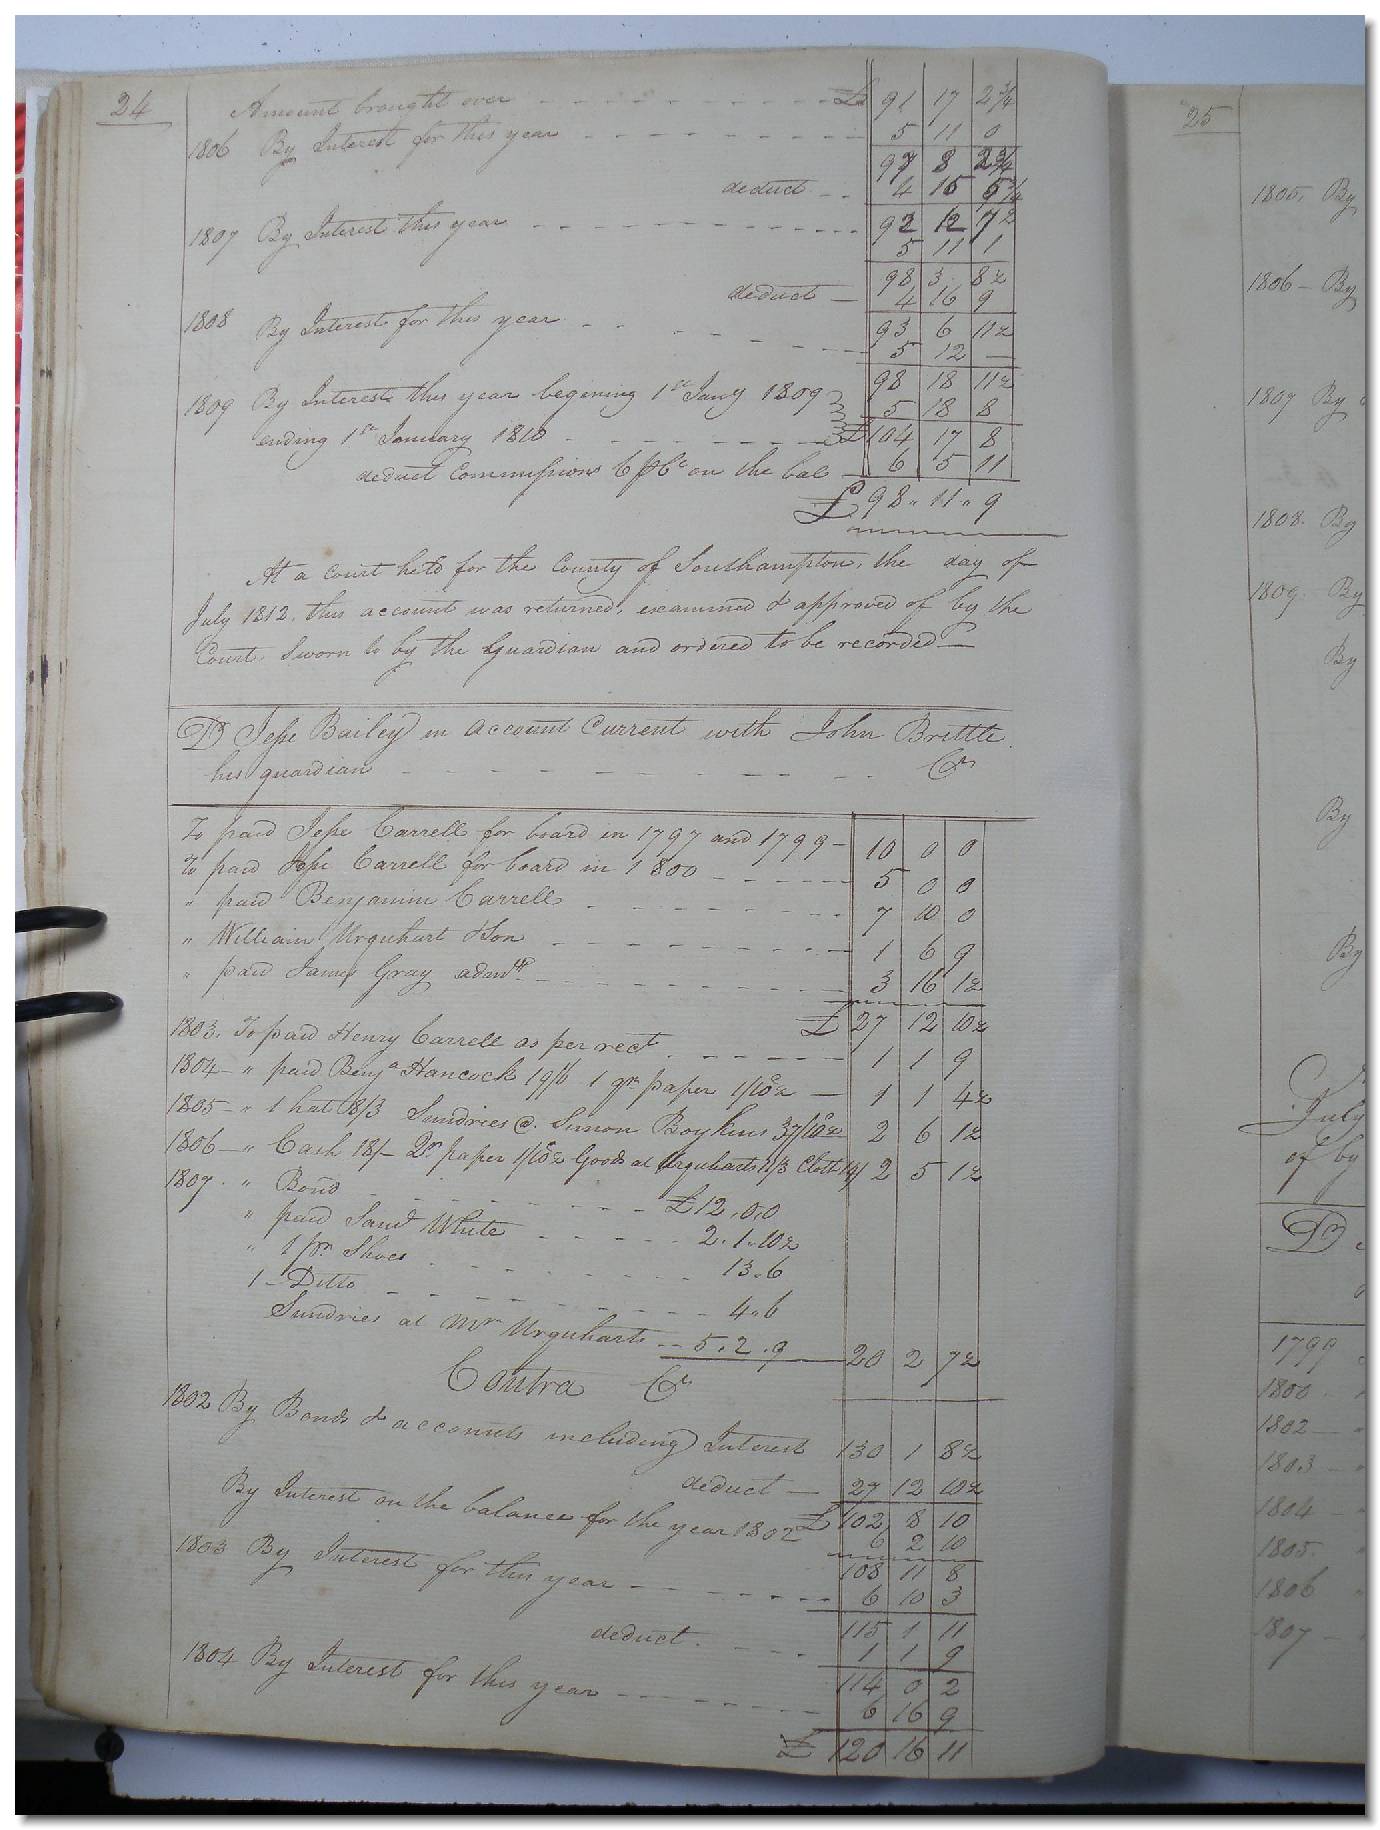 24
Amount brought over - - - £ 91 17 2¾
1806 By Interest for this year - - - 5 11 0
97 8 2¾
deduct - - 4 15 5¼
92 12 7½
1807 By Interest this year - - - 5 11 1
98 3 8½
deduct — 4 16 9
93 6 11½
1808 By Interest for this year - - - 5 12 —
98 18 11½
1809 By Interest this year begining 1st Jany 1809 5 18 8
ending 1st January 1810 - - - £ 104 17 8
deduct Commissions 6 pCt on the bal — 6 5 11
£ 98 " 11 " 9
At a Court held for the County of Southampton, the day of
July 1812. this account was returned, examined & approved of by the
Court, Sworn to by the Guardian and ordered to be recorded—
Dr Jesse Bailey in Account Current with John Brittle
his guardian - - - Cr
To paid Jesse Carrell for board in 1797 and 1799 - 10 0 0
To paid Jesse Carrell for board in 1800 - - - 5 0 0
" paid Benjamin Carrell - - - 7 10 0
" William Urquhart & Son - - - 1 6 9
" paid James Gray admr - - - 3 16 1½
£ 27 12 10½
1803. To paid Henry Carrell as per rect - - - 1 1 9
1804 - " paid Benja Hancock 19/6 1 qr paper 1/10½ — 1 1 4½
1805 - " 1 hat 8/3 Sundries @ Simon Boykins 37/10½ 2 6 1½
1806 - " Cash 18/- 2r paper 1/10½ Goods at Urquharts 11/3 Cloth 14/ 2 5 1½
1807 . " Bond - - - £12.0.0
" paid Saml White - - - 2.1.10½
" 1 pr. Shoes - - - 13.6
1 - Ditto - - - 4.6
Sundries at Mr Urquharts - - 5.2.9 20 2 7½
Contra Cr
1802 By Bonds & accounts including Interest 130 1 8½
deduct — 27 12 10½
£ 102 8 10
By Interest on the balance for the year 1802 6 2 10
108 11 8
1803 By Interest for this year - - - 6 10 3
115 1 11
deduct - - - 1 1 9
114 0 2
1804 By Interest for this year - - - 6 16 9
£ 120 16 11
25
1805, By
1806 - By
1807 By
1808. By
1809. By
By
By
By
July
of by
Dr
1799
1800
1802 —
1803 —
1804
1805.
1806
1807 —